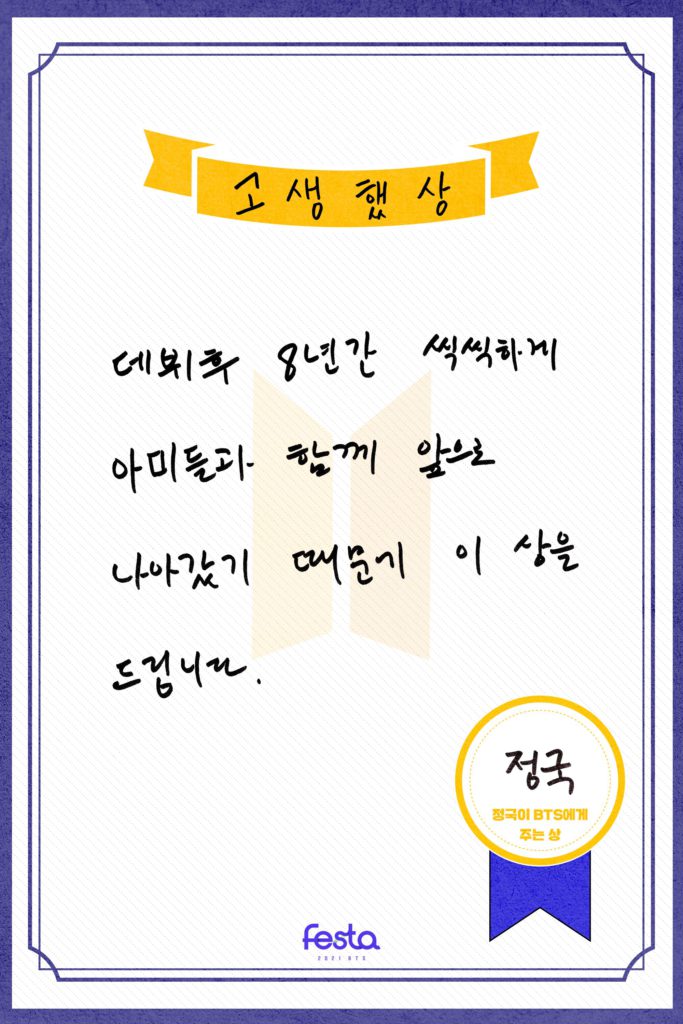 고생했상
데뷔후 8년간 씩씩하게
아미들과 함께 앞으로
나아갔기 때문에 이 상을
드립니다.
정국
정국이 BTS에게
주는 상
festa
2021 BTS